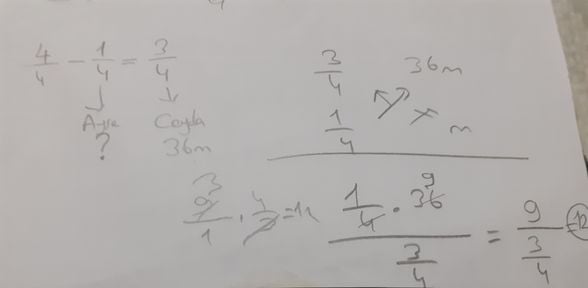 4/4 - 1/4 = 3/4
Ayşe Ceyda
? 36m
3/4 36m
1/4 x m
3
9/1 · 4/3 = 12
1/4 · 36 9
3/4
= 9
3/4
= 12